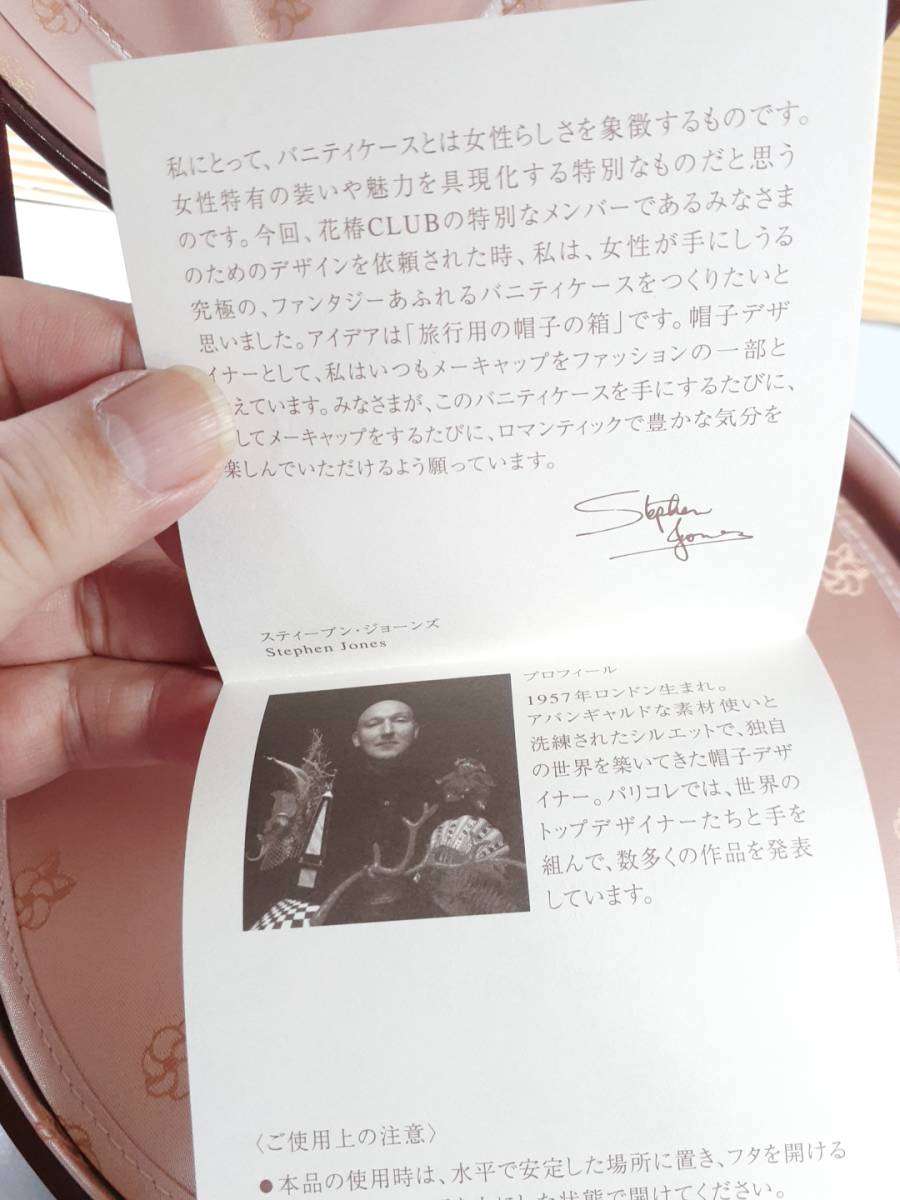 私にとって、バニティケースとは女性らしさを象徴するものです。
女性特有の装いや魅力を具現化する特別なものだと思う
のです。今回、花椿CLUBの特別なメンバーであるみなさま
のためのデザインを依頼された時、私は、女性が手にしうる
究極の、ファンタジーあふれるバニティケースをつくりたいと
思いました。アイデアは「旅行用の帽子の箱」です。帽子デザ
イナーとして、私はいつもメーキャップをファッションの一部と
えています。みなさまが、このバニティケースを手にするたびに、
してメーキャップをするたびに、ロマンティックで豊かな気分を
楽しんでいただけるよう願っています。
Stephen
Jones
スティーブン・ジョーンズ
Stephen Jones
プロフィール
1957年ロンドン生まれ。
アバンギャルドな素材使いと
洗練されたシルエットで、独自
の世界を築いてきた帽子デザ
イナー。パリコレでは、世界の
トップデザイナーたちと手を
組んで、数多くの作品を発表
しています。
〈ご使用上の注意〉
●本品の使用時は、水平で安定した場所に置き、フタを開ける
にした状態で開けてください。